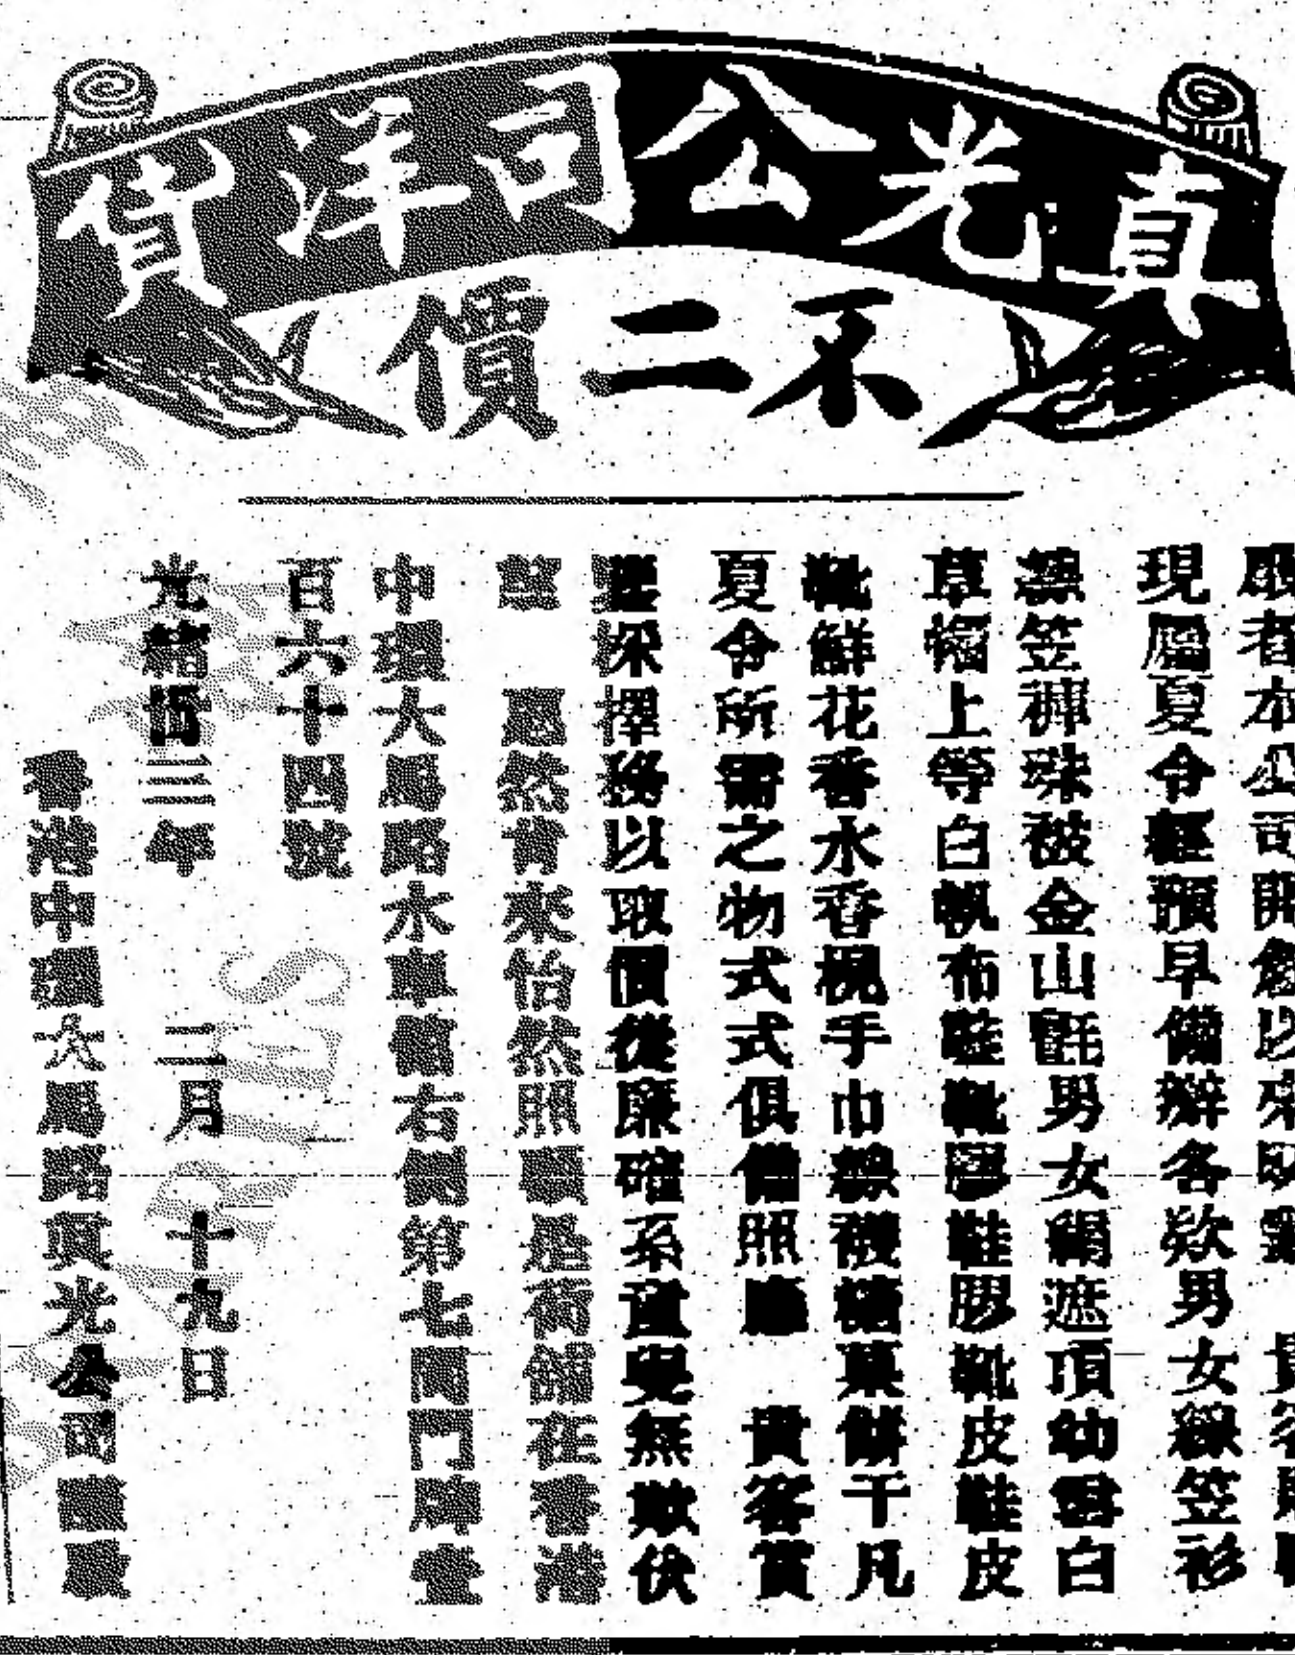 真光公司洋貨
不二價
啟者本公司開設以來
現屬夏令經預早備辦各欵男女線笠衫
線笠褲珠被金山氈男女絹遮頂幼雪白
草帽上等白帆布鞋靴膠鞋膠靴皮鞋皮
靴鮮花香水香梘手巾線襪糖菓餅干凡
夏令所需之物式式俱備照 貴客賞
採擇務以取價從廉確系童叟無欺伏
惠然肯來怡然照顧是荷舖在香港
中環大馬路水車館右側第七間門牌壹
百六十四號
光緒 三年 三月 十九日
香港中環大馬路真光公司謹啟